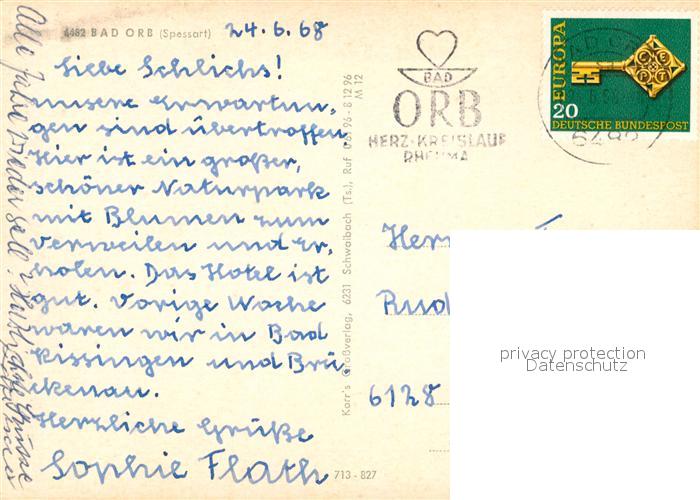 4482 BAD ORB (Spessart)
24.6.68
Liebe Schlichs!
unsere Erwartun-
gen sind übertroffen
Hier ist ein großer,
schöner Naturpark
mit Blumen zum
verweilen und Er-
holen. Das Hotel ist
gut. Vorige Woche
waren wir in Bad
Kissingen und Brü-
ckenau.
Herzliche Grüße
Sophie Flath
Alle Jahre wieder
Korr's Großverlag, 6231 Schwalbach (Ts.), Ruf 0 61 96 - 8 12 96
M 12
713 - 827
BAD
ORB
HERZ-KREISLAUF
RHEUMA
BAD
6482
EUROPA
CEPT
20
DEUTSCHE BUNDESPOST
Herr
Rud
6128
privacy protection
Datenschutz